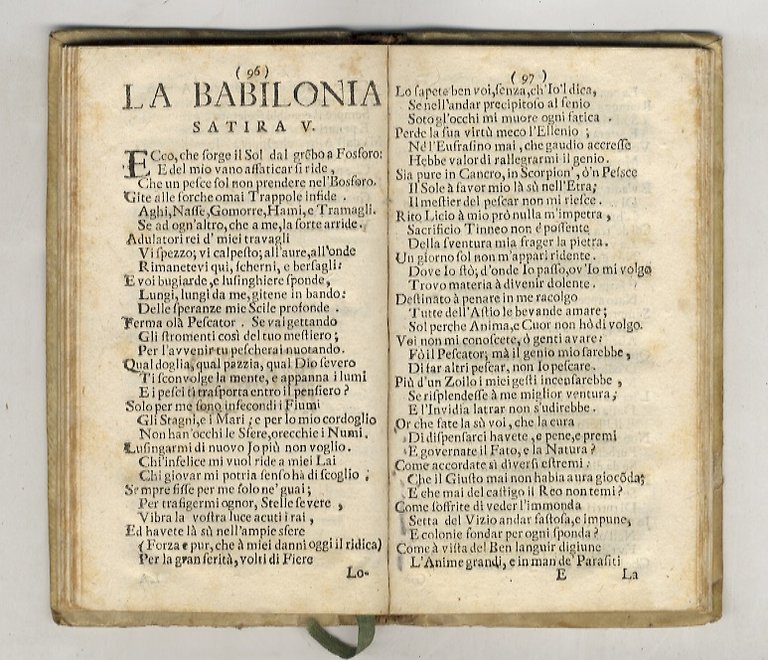 (96)
LA BABILONIA
SATIRA V.
ECco, che ſorge il Sol dal grẽbo a Fosforo:
E del mio vano affaticar ſi ride,
Che un peſce ſol non prendere nel'Bosforo.
Gite alle forche omai Trappole infide.
Aghi, Naſſe, Gomorre, Hami, e Tramagli.
Se ad ogn'altro, che a me, la ſorte arride.
Adulatori rei d' miei travagli
Vi ſpezzo; vi calpeſto; all'aure, all'onde
Rimanetevi quì, ſcherni, e berſagli:
E voi bugiarde, e luſinghiere ſponde,
Lungi, lungi da me, gitene in bando:
Delle ſperanze mie Scile profonde.
Ferma olà Peſcator. Se vai gettando
Gli ſtromenti così del tuo meſtiero;
Per l'avvenir tu peſcherai nuotando.
Qual doglia, qual pazzia, qual Dio ſevero
Ti ſconvolge la mente, e appanna i lumi
E i peſci ti traſporta entro il penſiero?
Solo per me ſono infecondi i Fiumi
Gli Stagni, e i Mari; e per lo mio cordoglio
Non han'occhi le Sfere, orecchie i Numi.
Luſingarmi di nuovo Io più non voglio.
Chi'infelice mi vuol ride a miei Lai
Chi giovar mi potria ſenſo hà di ſcoglio;
Sempre fiſſe per me ſolo ne' guai;
Per trafigermi ognor, Stelle ſevere,
Vibra la voſtra luce acuti i rai,
Ed havete là sù nell'ampie sfere
(Forza e pur, che à miei danni oggi il ridica)
Per la gran ferità, volti di Fiere
Lo-
(97)
Lo ſapete ben voi, ſenza, ch'Io'l dica,
Se nell'andar precipitoſo al ſenio
Soto gl'occhi mi muore ogni fatica.
Perde la ſua virtù meco l'Ellenio;
Nè l'Eufraſino mai, che gaudio accreſſe
Hebbe valor di rallegrarmi il genio.
Sia pure in Cancro, in Scorpion', ò'n Peſsce
Il Sole à favor mio là sù nell'Etra;
Il meſtier del peſcar non mi rieſce.
Rito Licio à mio prò nulla m'impetra,
Sacrificio Tinneo non é poſſente
Della ſventura mia frager la pietra.
Un giorno ſol non m'apparì ridente.
Dove Io ſtò; d'onde Io paſſo, ov'Io mi volgo
Trovo materia à divenir dolente.
Deſtinato à penare in me racolgo
Tutte dell'Aſtio le bevande amare;
Sol perche Anima, e Cuor non hò di volgo.
Voi non mi conoſcete, ò genti avare:
Fò il Peſcator; mà il genio mio ſarebbe,
Di far altri peſcar, non Io peſcare.
Più d'un Zoilo i miei geſti incenſarebbe,
Se riſplendeſſe à me miglior ventura;
E l'Invidia latrar non s'udirebbe.
Or che fate là sù voi, che la cura
Di diſpenſarci havete, e pene, e premi
E governate il Fato, e la Natura?
Come accordate sì diverſi eſtremi:
Che il Giuſto mai non habbia aura giocõda;
E che mai del caſtigo il Reo non temi?
Come ſoffrite di veder l'immonda
Setta del Vizio andar faſtoſa, e impune,
E colonie fondar per ogni ſponda?
Come à viſta del Ben languir digiune
L'Anime grandi, e in man de' Paraſiti
E La